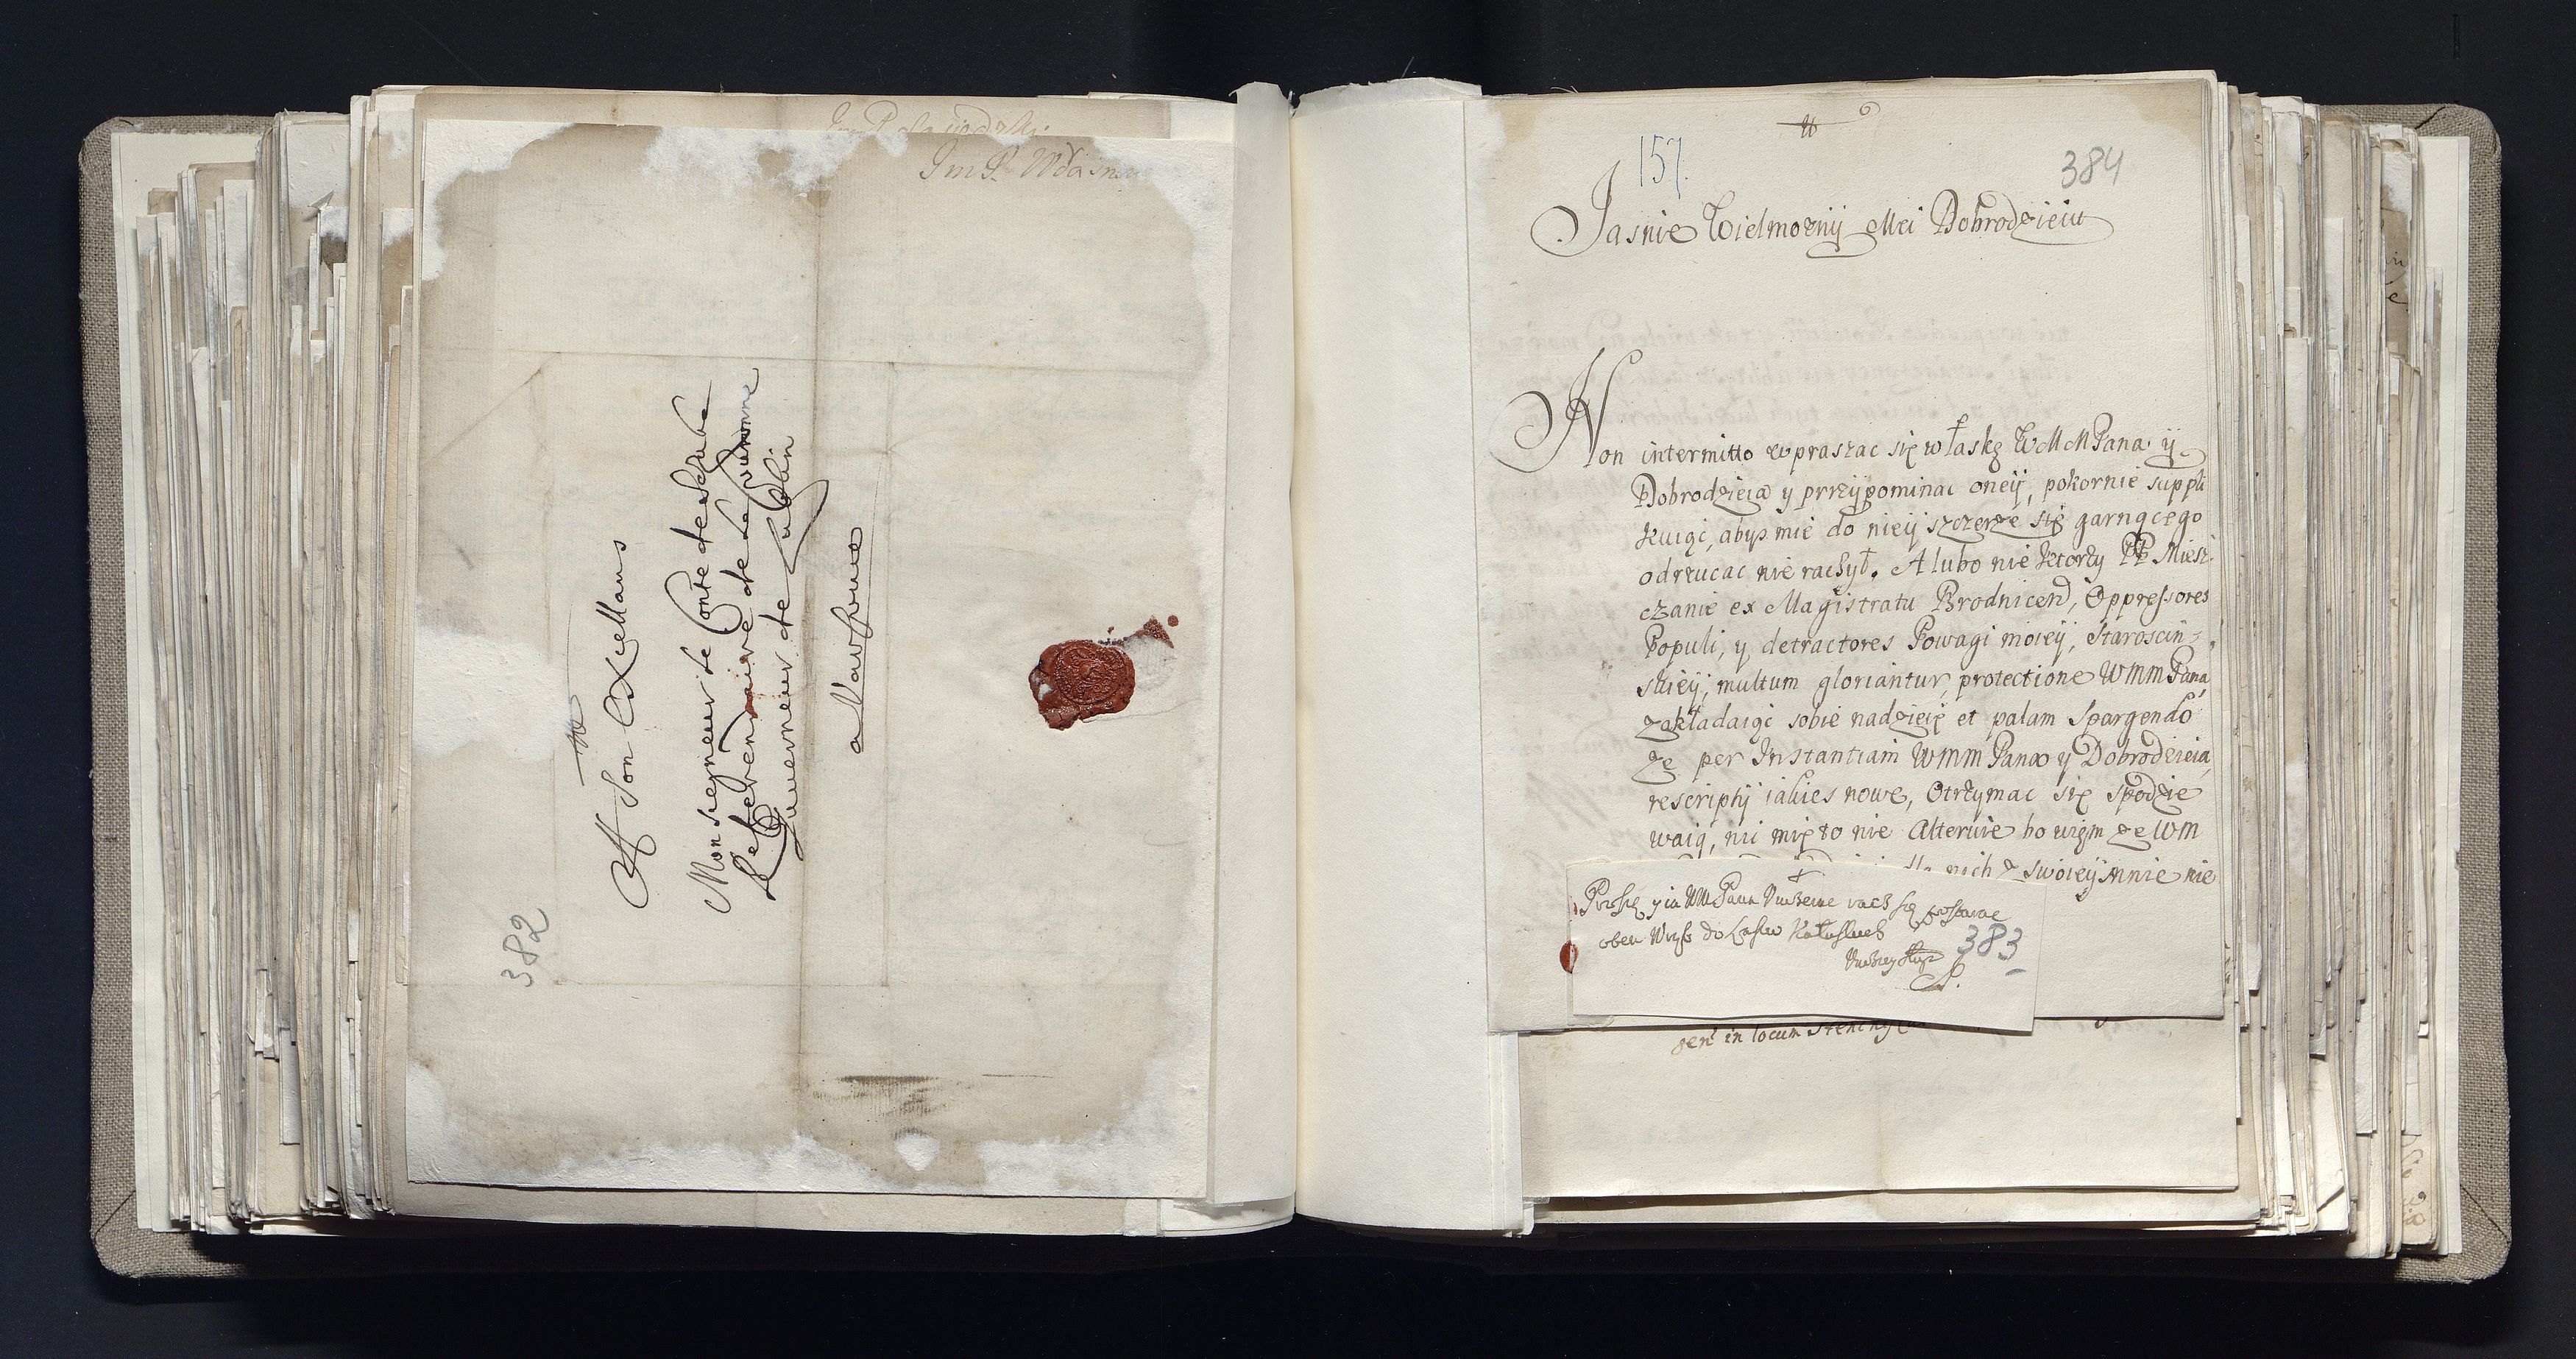 ImP. Wda
382
A Son Excellans
Monsieyneur Le Conte de Szuba
Referendaire de La Couronne
Gouverneur de Lublin
a Varsovie
157.
384
Jasnie Wielmoznij Mci Dobrodzieiu
Non intermitto wpraszac się w łaskę WMMPana ij
Dobrodzieia y przijpominac oneij, pokornie suppli
kuiąc, abyś mie do nieij szczerze się garnącego
odrzucac nie raczył. A lubo nie ktorzy PP Miesz:
czanie ex Magistratu Brodnicen, Oppressores
Populi, y detractores Powagi moieij, Staroscin=
skieij, multum gloriantur, protectione WMMPana
zakładaiąc sobie nadzieię et palam Spargendo
ze per Instantiam WMM Pana y Dobrodzieia,
rescriptij iakies nowe, Otrzymac się spodzie
waią, ni mię to nie Alteruie bo wiem ze WM
dla nich z swoieij Mnie nie
Proszę y ia WM Pana
do Lasow
383
S.
gen in locum